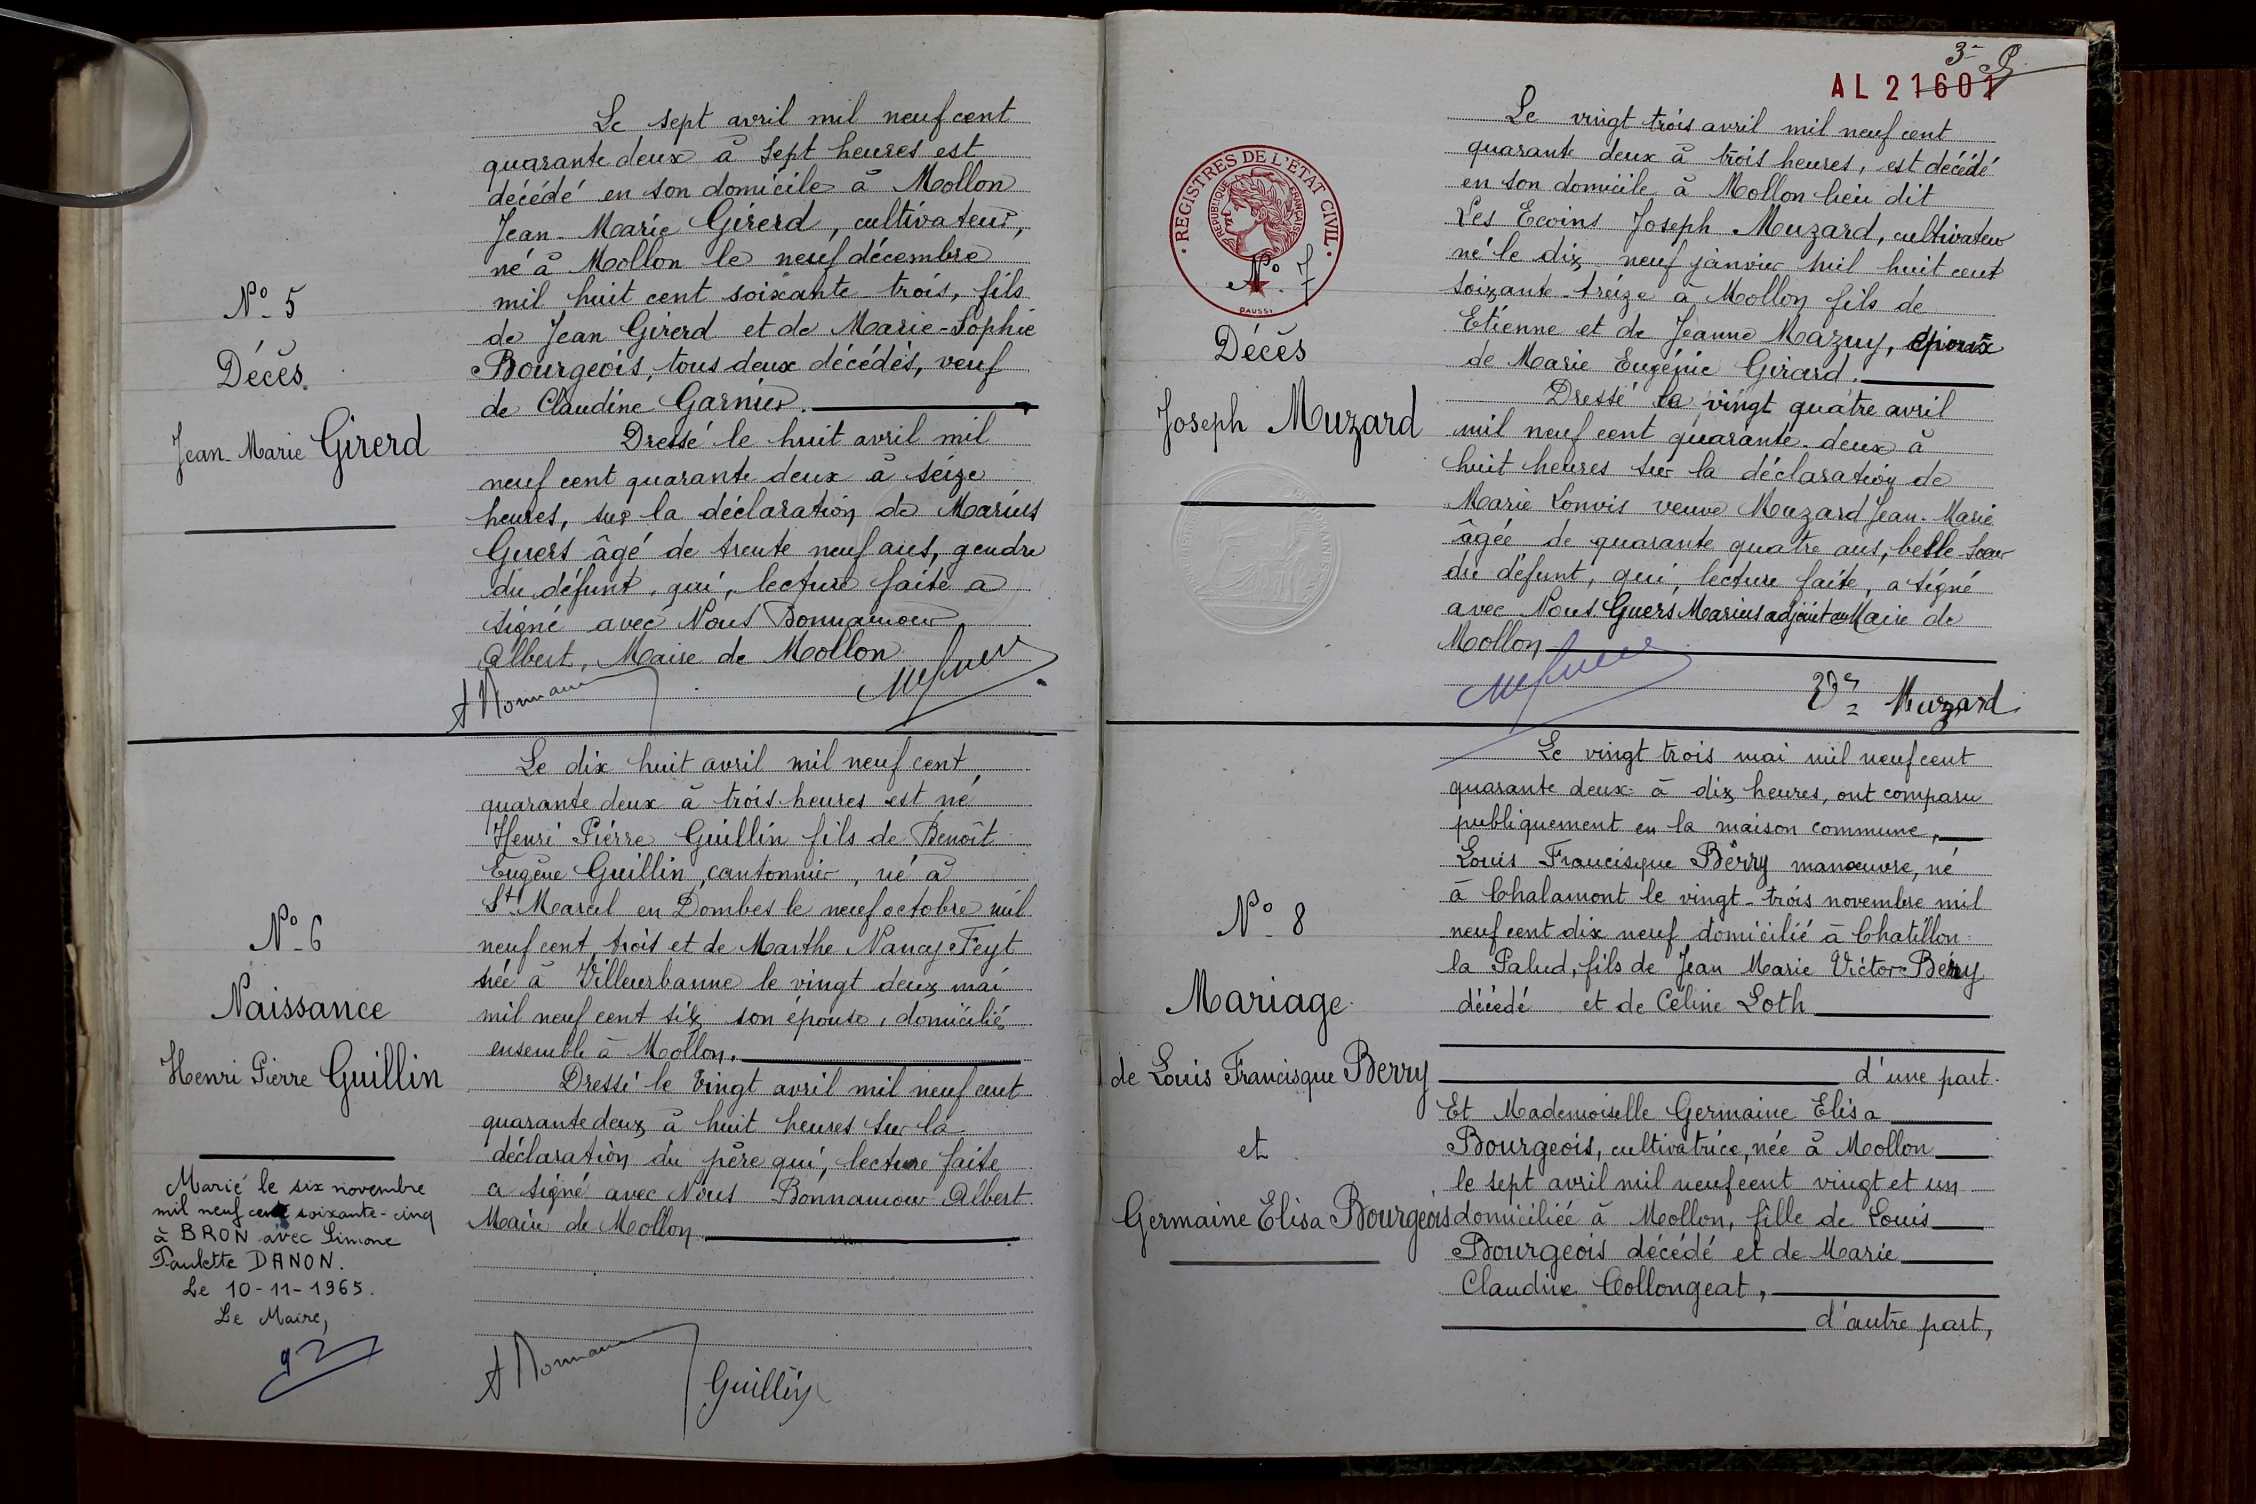 N° 5
Décès
Jean-Marie Girerd
Le sept avril mil neuf cent
quarante deux à sept heures est
décédé en son domicile à Mollon
Jean-Marie Girerd, cultivateur,
né à Mollon le neuf décembre
mil huit cent soixante trois, fils
de Jean Girerd et de Marie-Sophie
Bourgeois, tous deux décédés, veuf
de Claudine Garnier.
Dressé le huit avril mil
neuf cent quarante deux à seize
heures, sur la déclaration de Marius
Guers âgé de trente neuf ans, gendre
du défunt, qui, lecture faite a
signé avec Nous Bonnamour
Albert, Maire de Mollon
N° 6
Naissance
Henri Pierre Guillin
Marié le six novembre
mil neuf cent soixante-cinq
à BRON avec Simone
Paulette DANON.
Le 10-11-1965.
Le Maire,
Le dix huit avril mil neuf cent
quarante deux à trois heures est né
Henri Pierre Guillin fils de Benoît
Eugène Guillin, cantonnier, né à
St Marcel en Dombes le neuf octobre mil
neuf cent trois et de Marthe Nancy Feyt
née à Villeurbanne le vingt deux mai
mil neuf cent six son épouse, domiciliés
ensemble à Mollon.
Dressé le vingt avril mil neuf cent
quarante deux à huit heures sur la
déclaration du père qui, lecture faite
a signé avec Nous Bonnamour Albert
Maire de Mollon
Guillin
3
AL 21601
REGISTRES DE L'ÉTAT CIVIL
RÉPUBLIQUE FRANÇAISE
DAUSSI
N° 7
Décès
Joseph Muzard
Le vingt trois avril mil neuf cent
quarante deux à trois heures, est décédé
en son domicile à Mollon lieu dit
Les Ecoins Joseph Muzard, cultivateur
né le dix neuf janvier mil huit cent
soixante-treize à Mollon fils de
Etienne et de Jeanne Mazuy, époux
de Marie Eugénie Girard.
Dressé le vingt quatre avril
mil neuf cent quarante-deux à
huit heures sur la déclaration de
Marie Lonvis veuve Muzard Jean-Marie
âgée de quarante quatre ans, belle-sœur
du défunt, qui, lecture faite, a signé
avec Nous Guers Marius adjoint au Maire de
Mollon
Vve Muzard
N° 8
Mariage
de Louis Francisque Berry
et
Germaine Elisa Bourgeois
Le vingt trois mai mil neuf cent
quarante deux à dix heures, ont comparu
publiquement en la maison commune,
Louis Francisque Berry manœuvre, né
à Chalamont le vingt-trois novembre mil
neuf cent dix neuf domicilié à Chatillon
la Palud, fils de Jean Marie Victor Berry
décédé et de Céline Loth
d'une part.
Et Mademoiselle Germaine Elisa
Bourgeois, cultivatrice, née à Mollon
le sept avril mil neuf cent vingt et un
domiciliée à Mollon, fille de Louis
Bourgeois décédé et de Marie
Claudine Collongeat,
d'autre part,